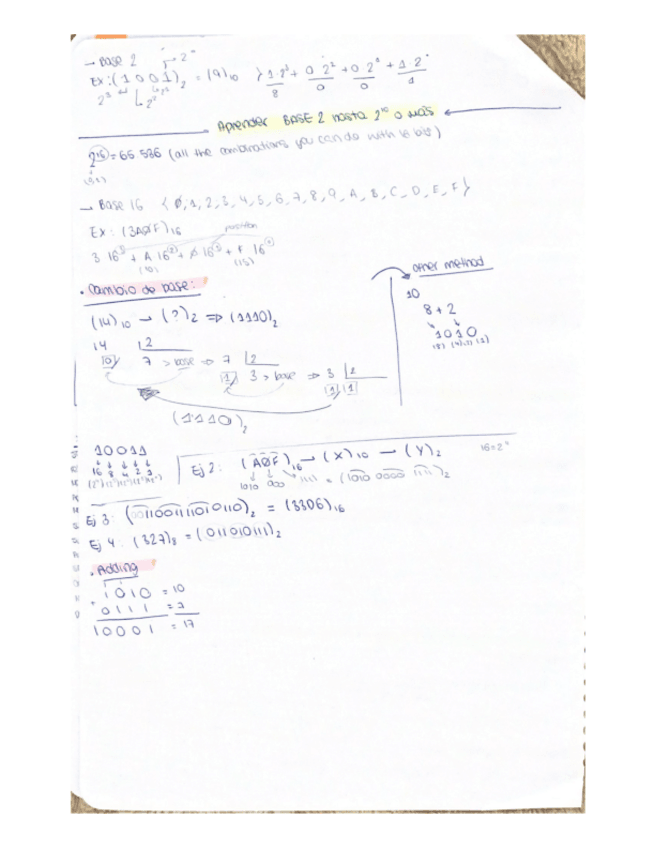 → Base 2
Ex: (1001)₂ = (9)₁₀ } 1·2³ + 0 2² + 0 2¹ + 1·2⁰
8 0 0 1
Aprender BASE 2 hasta 2¹⁰ o más
2¹⁶ = 65.536 (all the combinations you can do with 16 bits)
→ Base 16 {0, 1, 2, 3, 4, 5, 6, 7, 8, 9, A, B, C, D, E, F}
Ex: (3A0F)₁₆ position
3 16³ + A 16² + 0 16¹ + F 16⁰
(10) (15)
• Cambio de base:
(14)₁₀ → (?)₂ ⇒ (1110)₂
14 |2
0 7 > base ⇒ 7 |2
1 3 > base ⇒ 3 |2
1 1
(1110)₂
other method
10
8 + 2
1010
(8) (4) (2) (1)
10011
16 8 4 2 1
Ej 2: (A0F)₁₆ → (X)₁₀ → (Y)₂ 16=2⁴
1010 000 1111 = (1010 0000 1111)₂
Ej 3: (0011001110110)₂ = (3306)₁₆
Ej 4: (327)₈ = (011010111)₂
• Adding
1010 = 10
+ 0111 = 7
10001 = 17